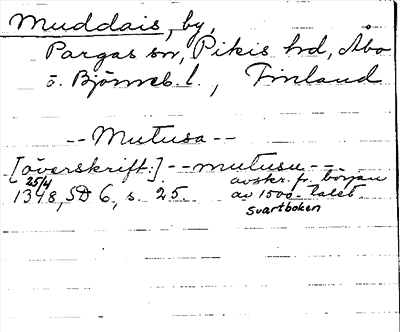 Muddais, by,
Pargas sn, Pikis hd, Åbo
o. Björneb. l., Finland
-- Mutusa --
[överskrift:] -- mutusu --
25/4 1348, SD 6, s. 25. avskr. fr. början
av 1500-talet.
Svartboken